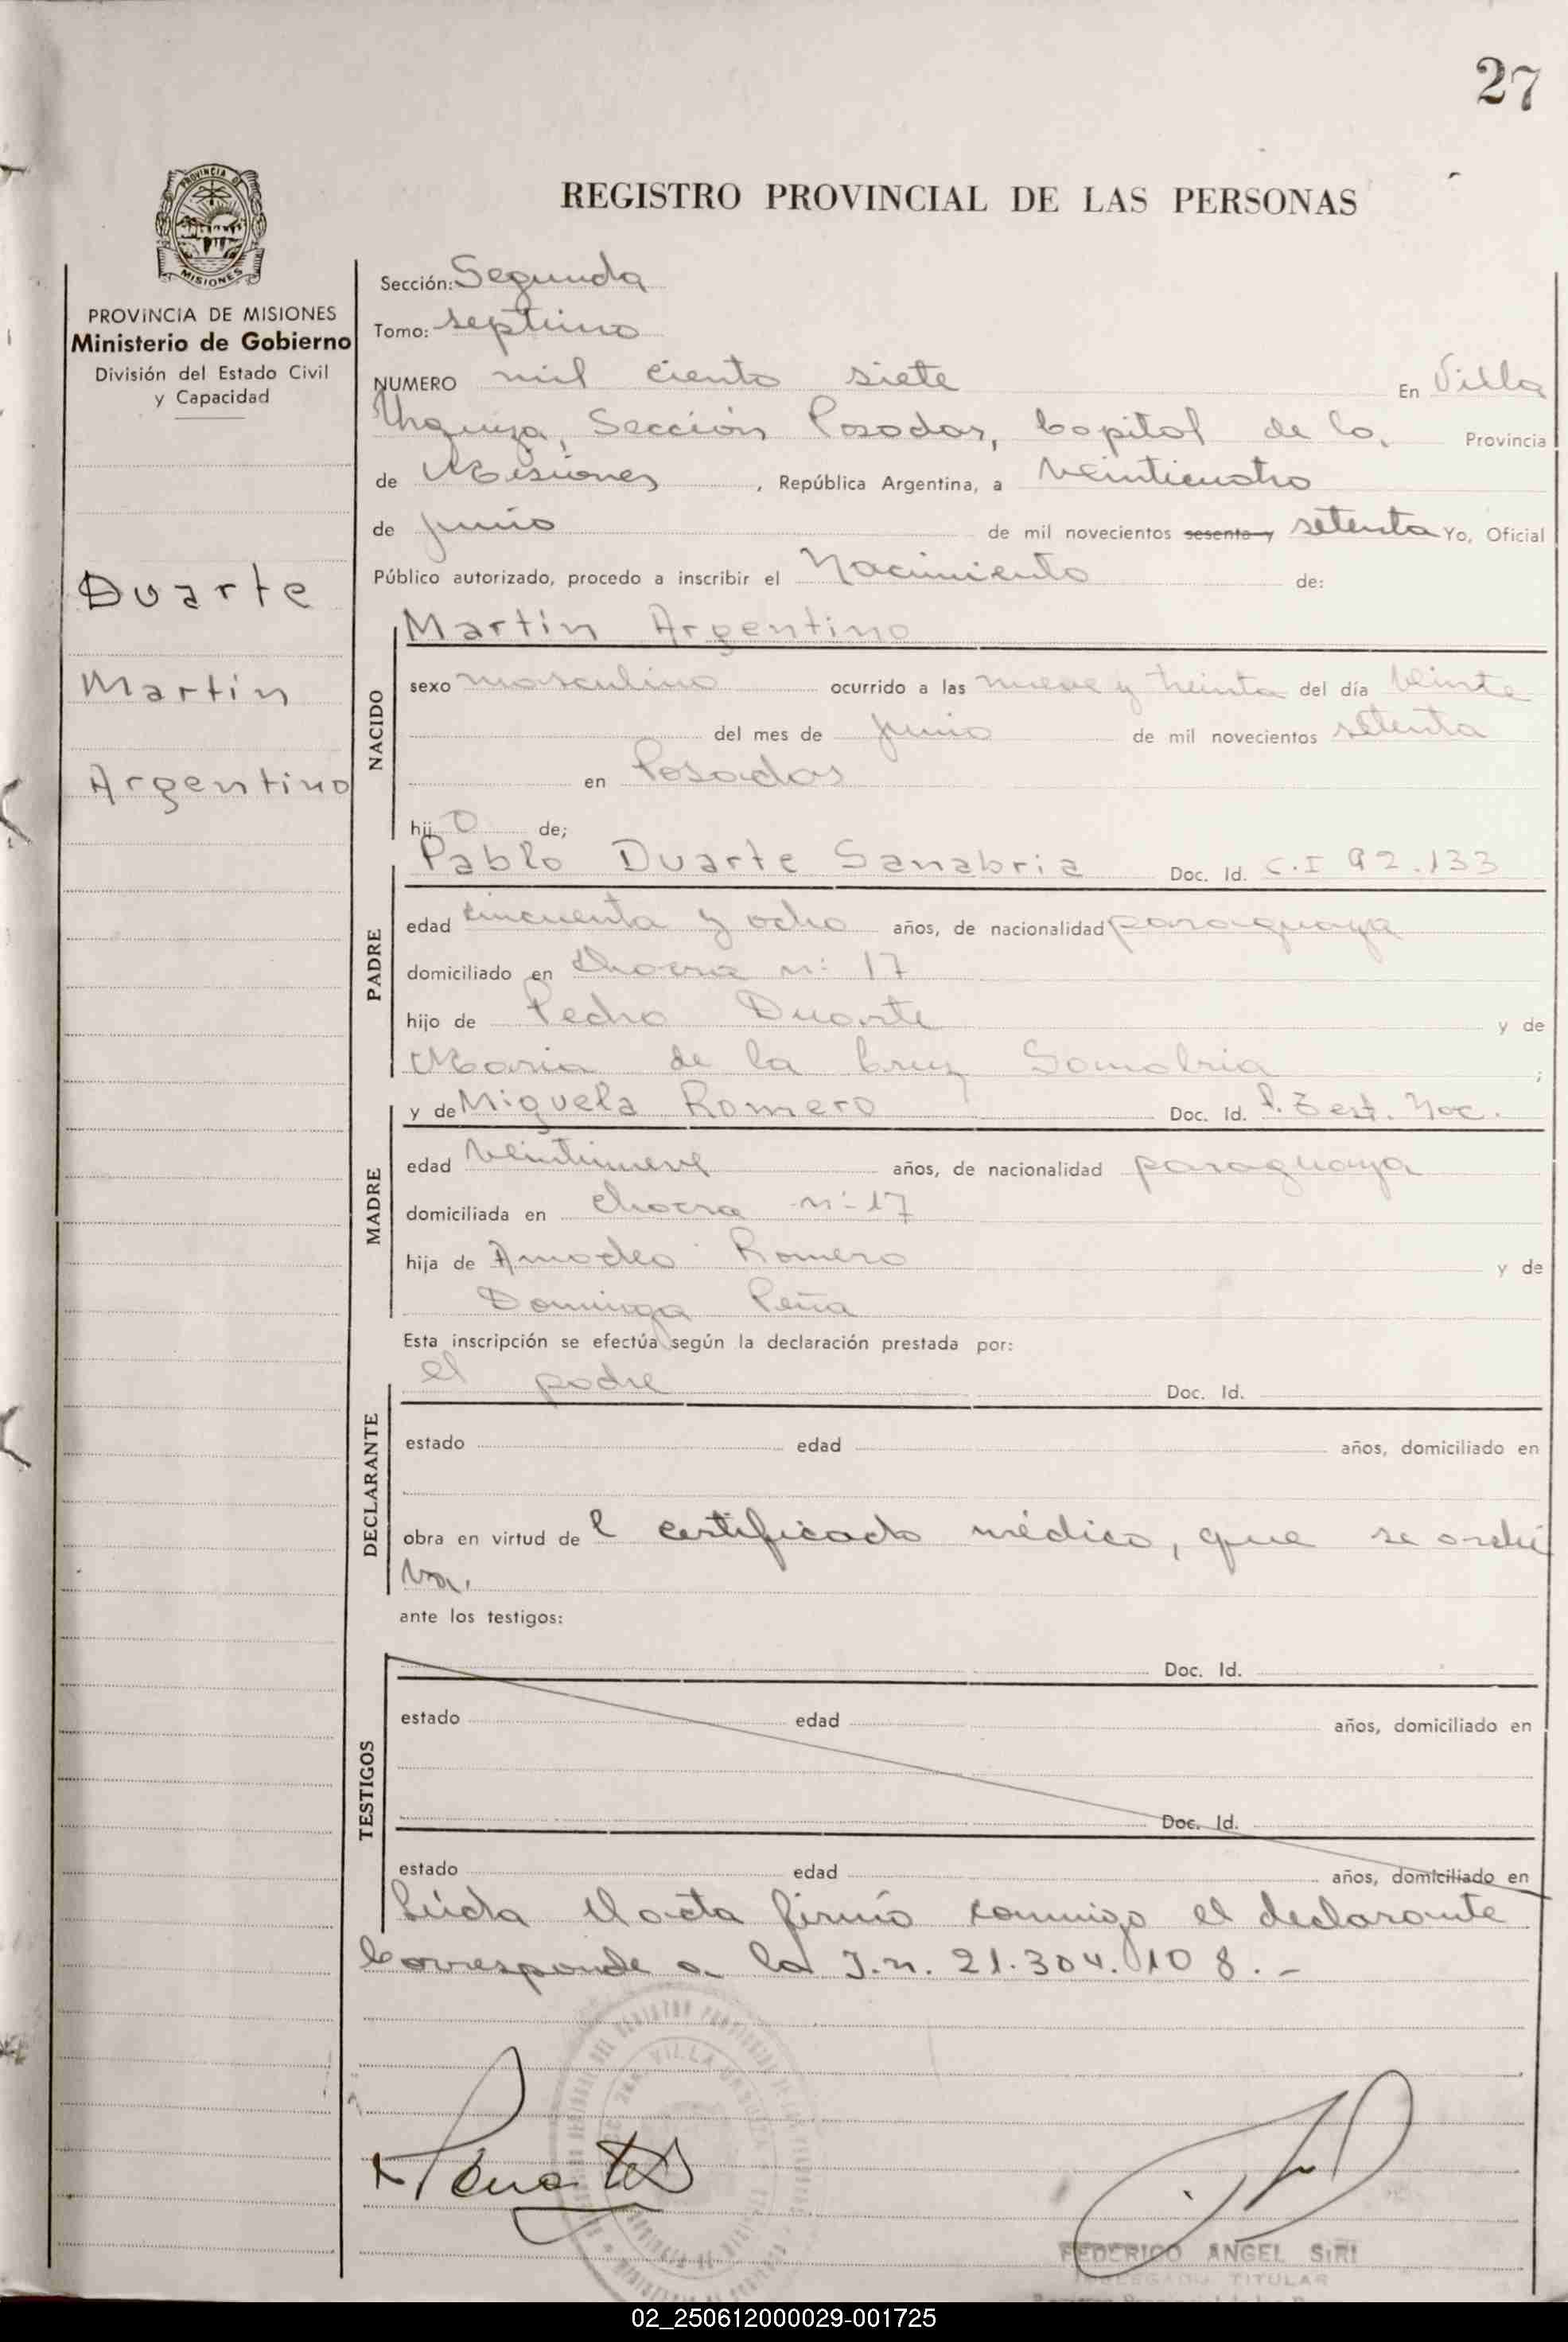 27
REGISTRO PROVINCIAL DE LAS PERSONAS
PROVINCIA DE
MISIONES
PROVINCIA DE MISIONES
Ministerio de Gobierno
División del Estado Civil
y Capacidad
Duarte
Martin
Argentino
Sección: Segunda
Tomo: septimo
NUMERO mil ciento siete En Villa
Urquiza, Sección Posadas, Capital de la, Provincia
de Misiones, República Argentina, a veinticuatro
de junio de mil novecientos sesenta y setenta Yo, Oficial
Público autorizado, procedo a inscribir el Nacimiento de:
NACIDO
Martin Argentino
sexo masculino ocurrido a las nueve y treinta del día veinte
del mes de junio de mil novecientos setenta
en Posadas
hijo de;
PADRE
Pablo Duarte Sanabria Doc. Id. C.I 92.133
edad cincuenta y ocho años, de nacionalidad paraguaya
domiciliado en Chacra n: 17
hijo de Pedro Duarte y de
Maria de la Cruz Sanabria ;
MADRE
y de Miguela Romero Doc. Id. P. Test. Nac.
edad veintinueve años, de nacionalidad paraguaya
domiciliada en chacra n: 17
hija de Amadeo Romero y de
Dominga Peña
Esta inscripción se efectúa según la declaración prestada por:
DECLARANTE
el padre Doc. Id.
estado edad años, domiciliado en
obra en virtud del certificado médico, que se archi
va.
ante los testigos:
TESTIGOS
Doc. Id.
estado edad años, domiciliado en
Doc. Id.
estado edad años, domiciliado en
Leída el acta firmó conmigo el declarante
Corresponde a la I.n. 21.304.108.-
VILLA URQUIZA
FEDERICO ANGEL SIRI
DELEGADO TITULAR
02_250612000029-001725